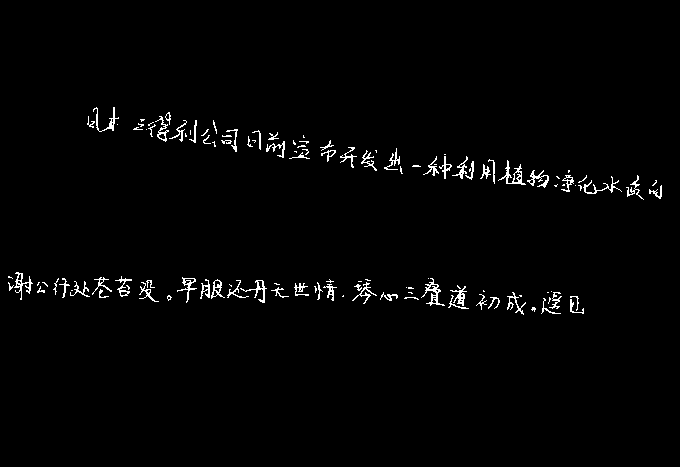 日本三得利公司日前宣布开发出一种利用植物净化水质的
谢公行处苍苔没。早服还丹无世情,琴心三叠道初成。遥见